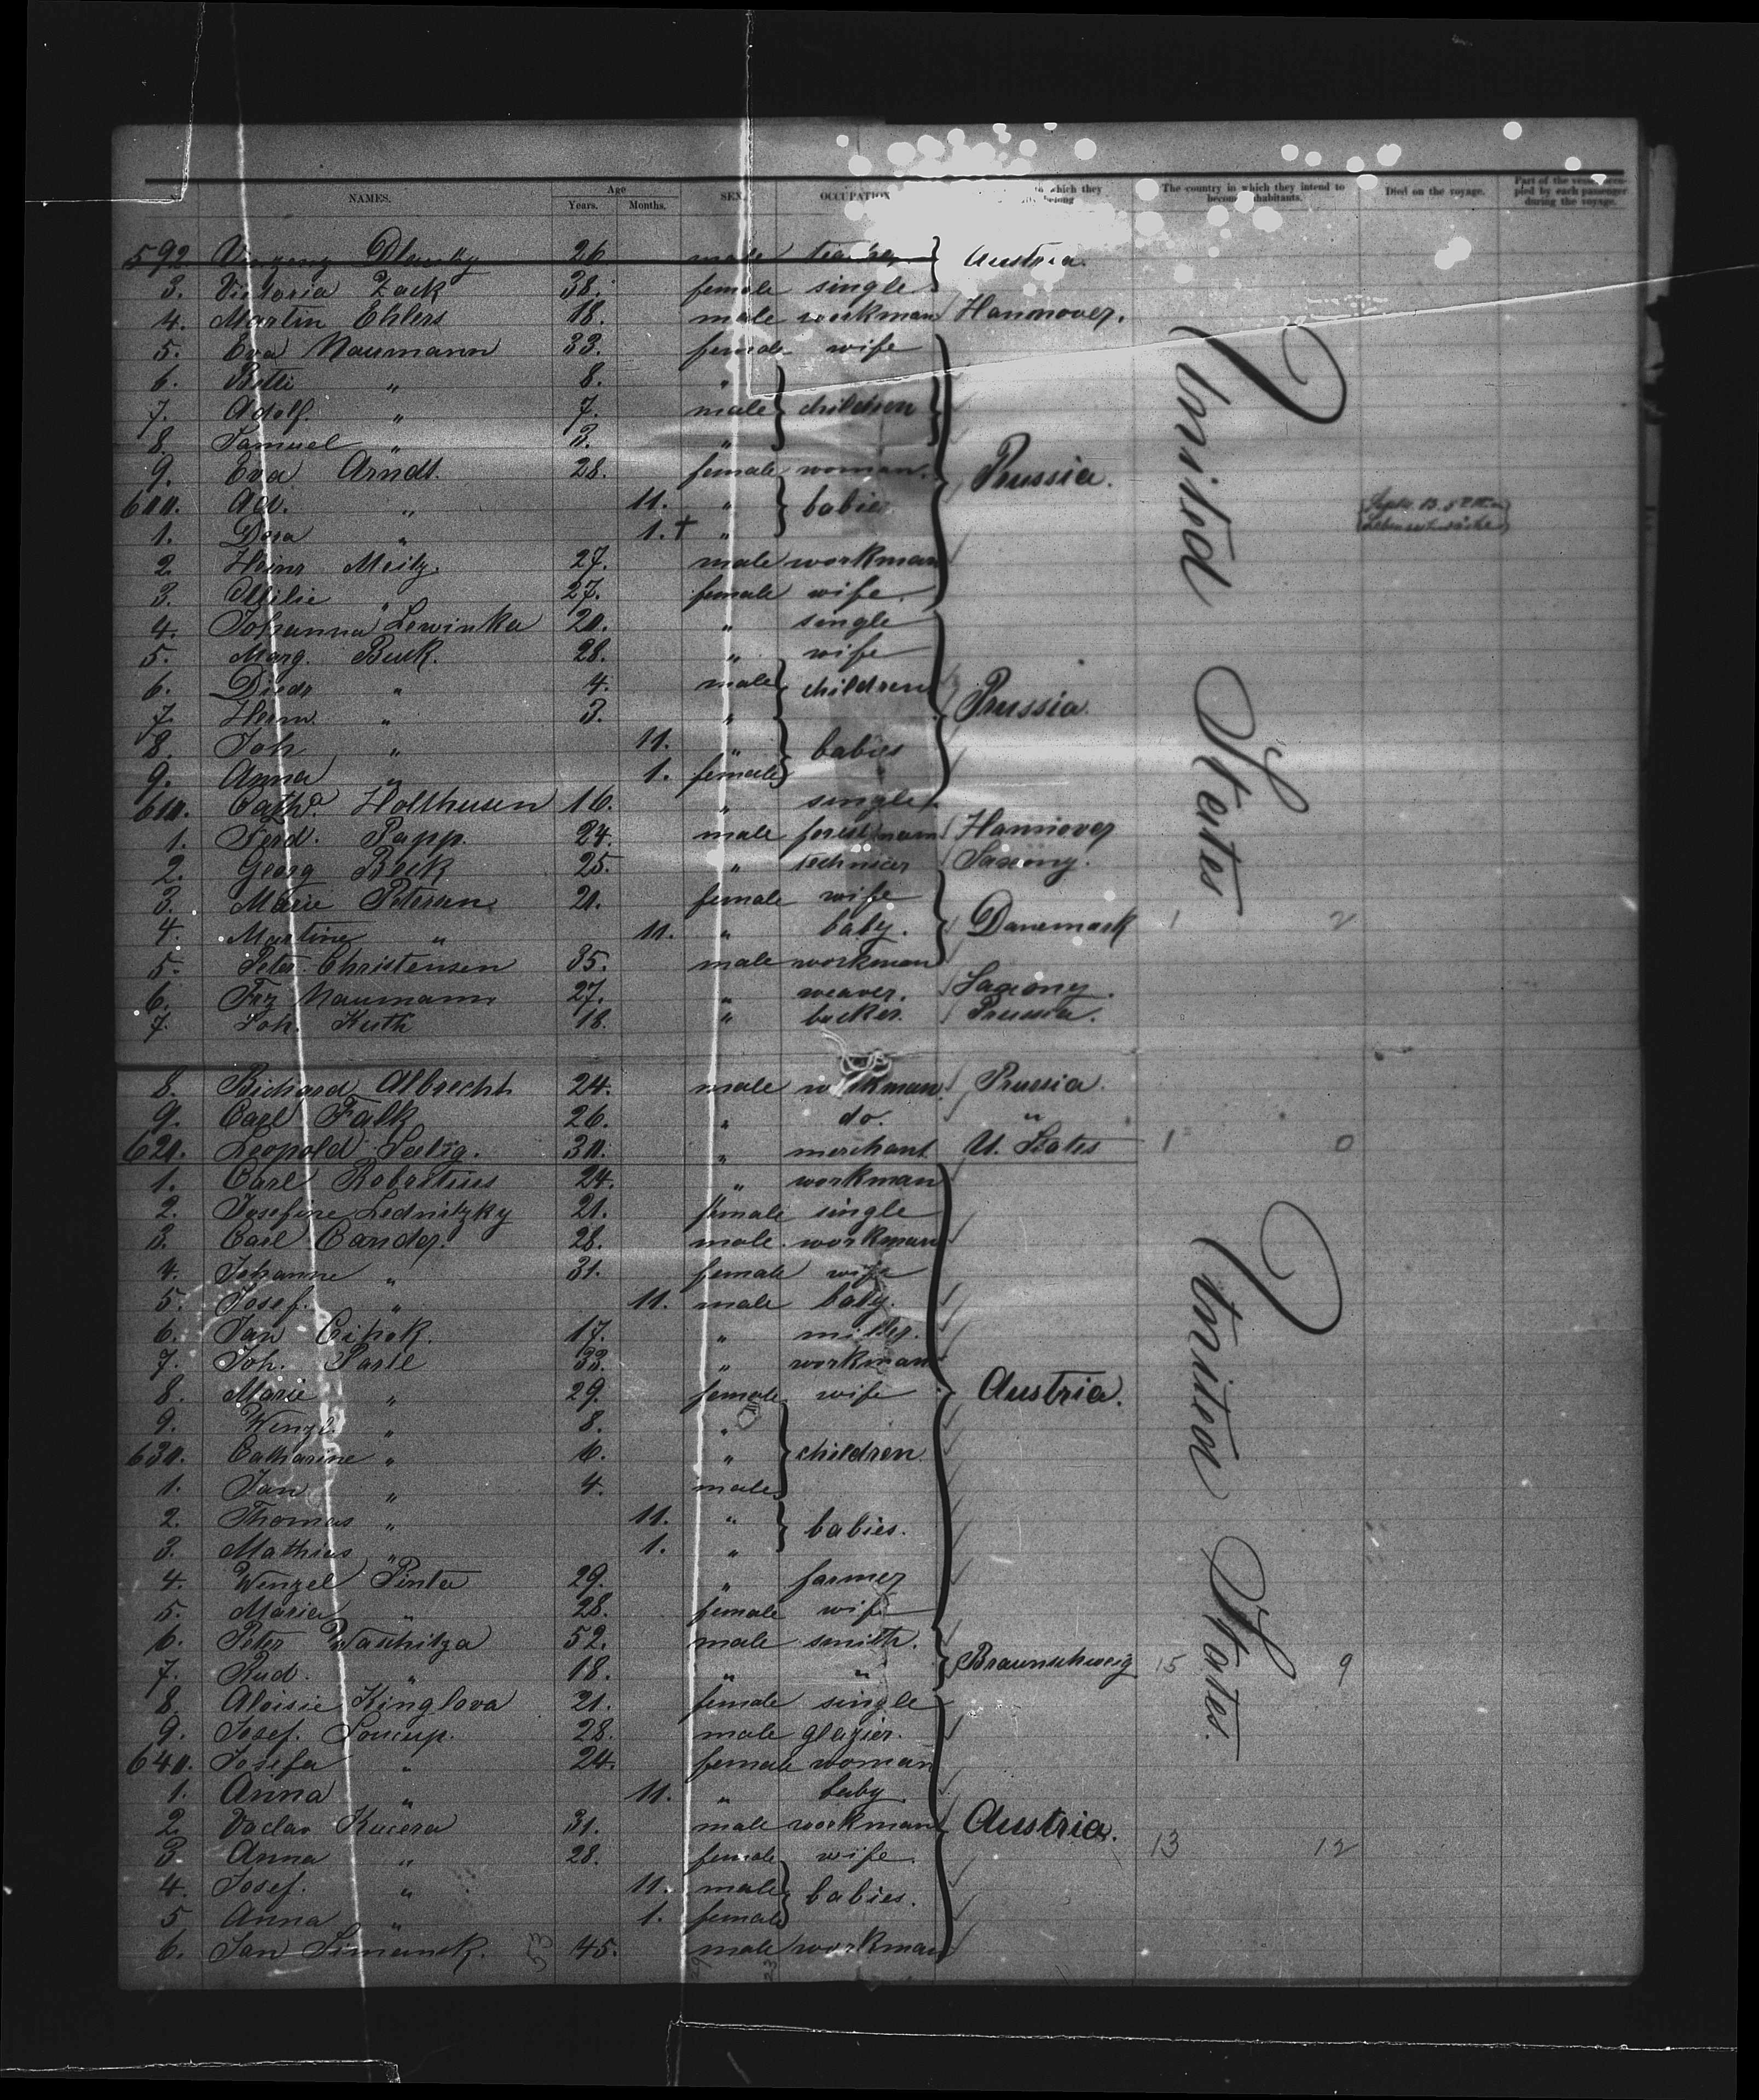 NAMES. Age Years. Months. SEX. OCCUPATION which they belong The country in which they intend to become inhabitants. Died on the voyage. Part of the vessel occupied by each passenger during the voyage.
592 26 male Austria.
3. Victoria Zack 38. female single
4. Martin Ehlers 18. male workman Hannover.
5. Eva Naumann 33. female wife
6. Betti " 8. "
7. Adolf. " 7. male children
8. Samuel " 3. "
9. Eva Arndt. 28. female woman. Prussia.
600. Ad. " 11. " babies.
1. Dora " 1. + "
2. Heinr Meitz. 27. male workman
3. Ottilie " 27. female wife.
4. Johanna Lewinka 20. " single
5. Marg. Buck. 28. " wife
6. Diedr " 4. male children
7. Herm. " 3. " Prussia.
8. Joh " 11. " babies
9. Anna " 1. female
610. Cath. Holthusen 16. " single.
1. Ferd. Papp. 24. male forestmann Hannover
2. Georg Beck 25. " technicer Saxony.
3. Marie Petersen 20. female wife
4. Martine " 11. " baby. Danemark 1 2
5. Peter Christensen 35. male workman
6. Frz Naumann 27. " weaver. Saxony.
7. Joh. Kuth 18. " backer. Prussia.
United States
8. Richard Albrecht 24. male workman. Prussia.
9. Carl Falk 26. " do. "
620. Leopold Selig. 30. " merchant U. States 1 0
1. Carl Robertus 24. " workman
2. Josefine Lednitzky 21. female single
3. Carl Cander. 28. male workman
4. Johanne " 31. female wife
5. Josef. " 11. male baby.
6. Jan Cihak. 17. " miller.
7. Joh. Parle 33. " workman
8. Marie " 29. female wife Austria.
9. Wenzl. " 8. "
630. Catharine " 6. " children
1. Jan " 4. male
2. Thomas " 11. " babies.
3. Mathias " 1. "
4. Wenzel Pinta 29. " farmer
5. Maria " 28. female wife
6. Peter Waschitza 52. male smith.
7. Rud. " 18. " " Braunschweig 15 9
8. Aloisie Kinglova 21. female single
9. Josef. Soucup. 28. male glazier.
640. Josefa " 24. female woman
1. Anna " 11. " baby.
2. Vaclav Kucera 31. male workman Austria.
3. Anna " 28. female wife. 13 12
4. Josef. " 11. male babies.
5. Anna " 1. female
6. Jan Simanek. 53 45. male workman
29 23
United States.